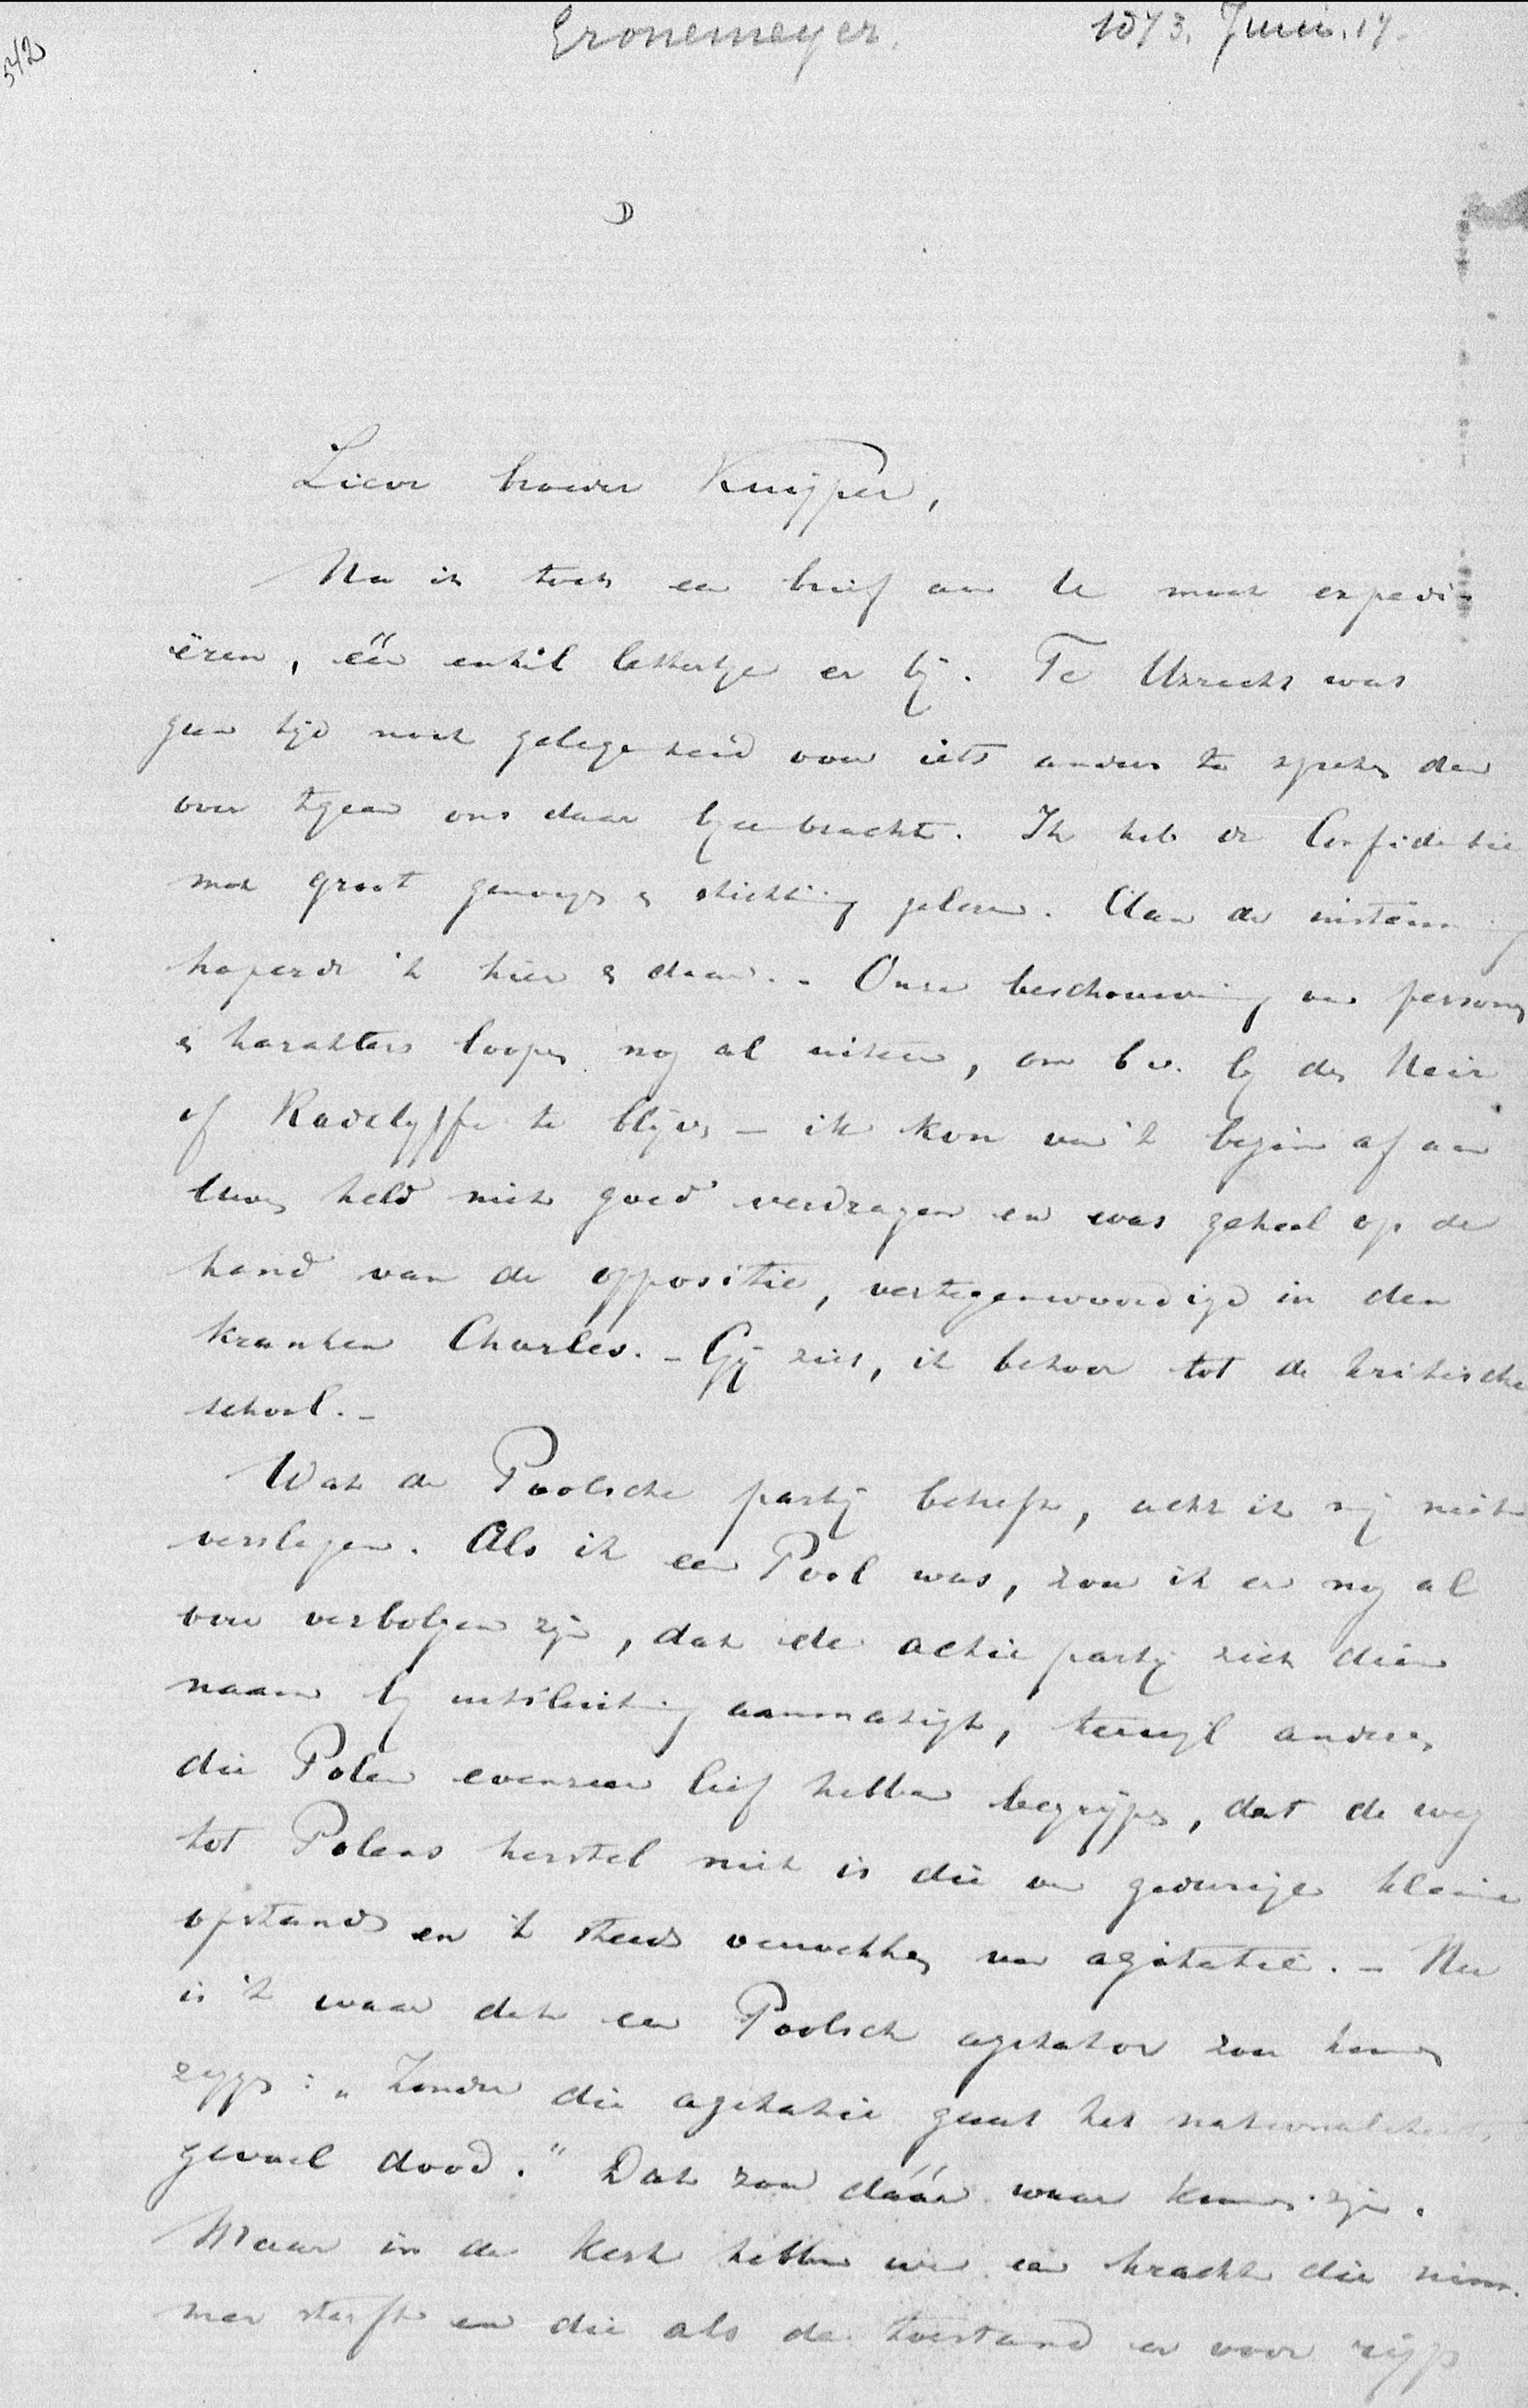 Gronemeyer. 1873. Juni. 17.
542
Lieve broeder Kuijper,
Nu ik toch een brief aan U moet expedi-
ëren, één enkel lettertje er bij. Te Utrecht was
geen tijd noch gelegenheid voor iets anders te spreken dan
over 'tgeen ons daar bijeenbracht. Ik heb de Confidentie
met groot genoegen & stichting gelezen. Aan de instemming
haperde 't hier & daar. - Onze beschouwing van personen
& karakters loopen nog al uiteen, om b.v. bij de Heir
of Radclyffe te blijven - ik kon van 't begin af aan
Uwen held niet goed verdragen en was geheel op de
hand van de oppositie, vertegenwoordigd in den
kranken Charles. - Gij ziet, ik behoor tot de kritische
school. -
Wat de Poolsche partij betreft, acht ik mij niet
verslagen. Als ik een Pool was, zou ik er nog al
over verbolgen zijn, dat de actie partij zich dien
naam bij uitsluiting aanmatigt, terwijl anderen
die Polen evenzeer lief hebben begrijpen, dat de weg
tot Polens herstel niet is die van gedurige kleine
opstands en 't steeds verwekken van agitatie. - Nu
is 't waar dat een Poolsch agitator zou kunnen
zeggen: „Zonder die agitatie gaat het nationaliteits
gevoel dood." Dat zou dáár waar kunnen zijn.
Maar in de Kerk hebben we een kracht die nim-
mer sterft en die als de toestand er voor rijp